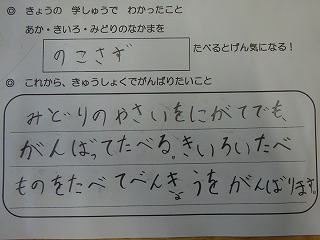 ◎ きょうの 学しゅうで わかったこと
あか・きいろ・みどりのなかまを
のこさず たべるとげん気になる！
◎ これから、きゅうしょくでがんばりたいこと
みどりのやさいをにがてでも、
がんばってたべる。きいろいたべ
ものをたべてべんきょうをがんばります。